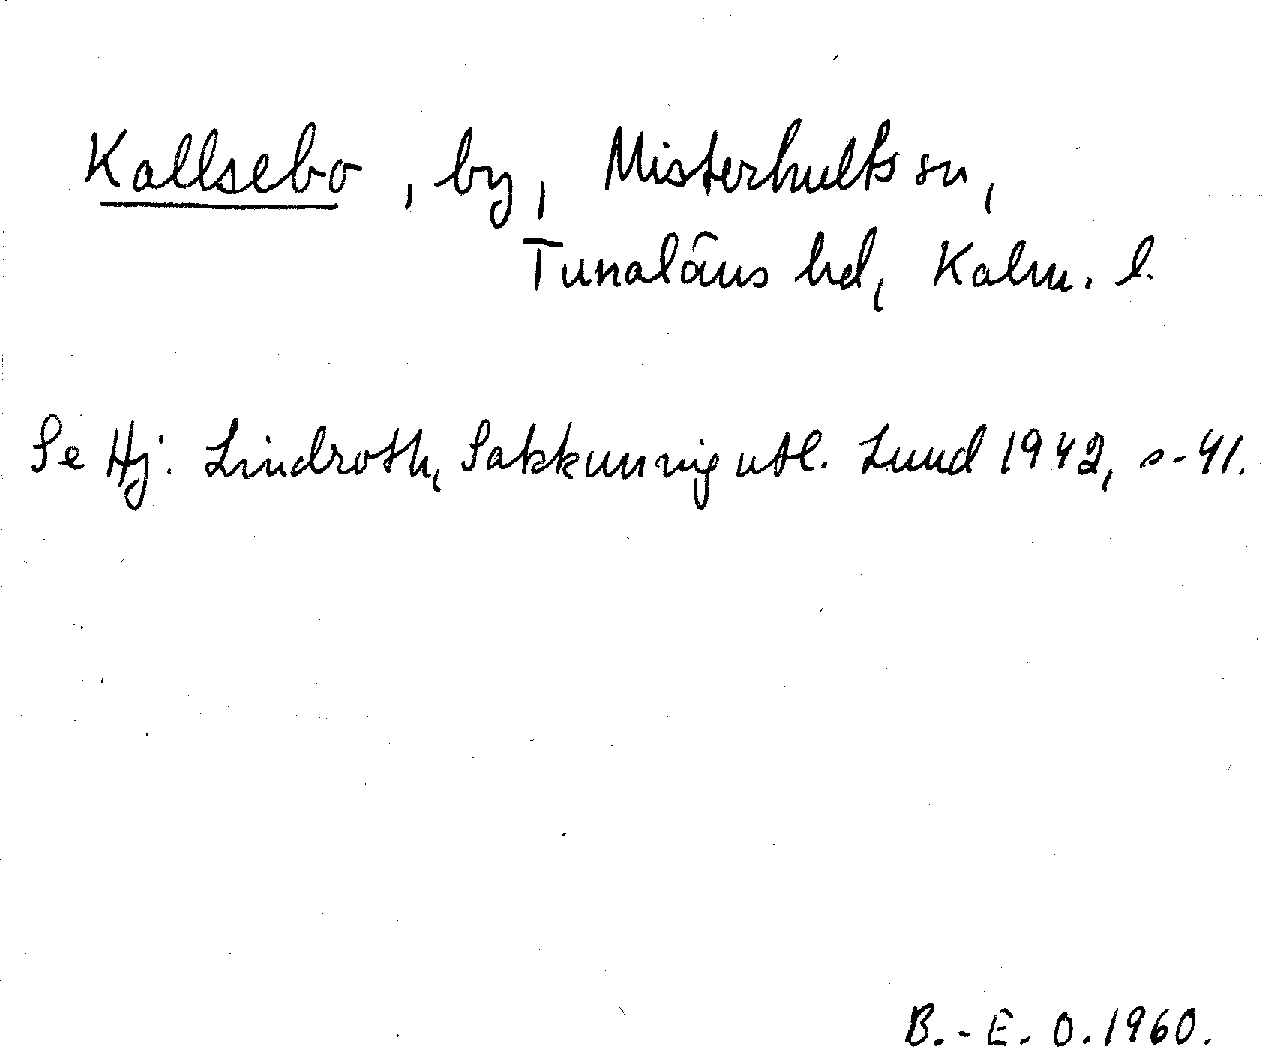 Kallsebo, by, Misterhults sn,
Tunaläns hd, Kalm. l.
Se Hj. Lindroth, Sakkunnig utl. Lund 1942, s. 41.
B.-E. O. 1960.